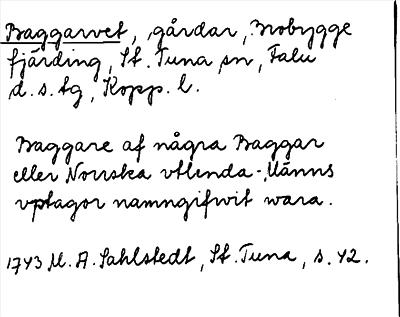 Baggarvet, gårdar, Brobygge
fjärding, St. Tuna sn, Falu
d. s. tg, Kopp. l.
Baggare af några Baggar
eller Norrska vtlenda-Männs
vptagor namngifwit wara.
1743 M. A. Sahlstedt, St. Tuna, s. 42.